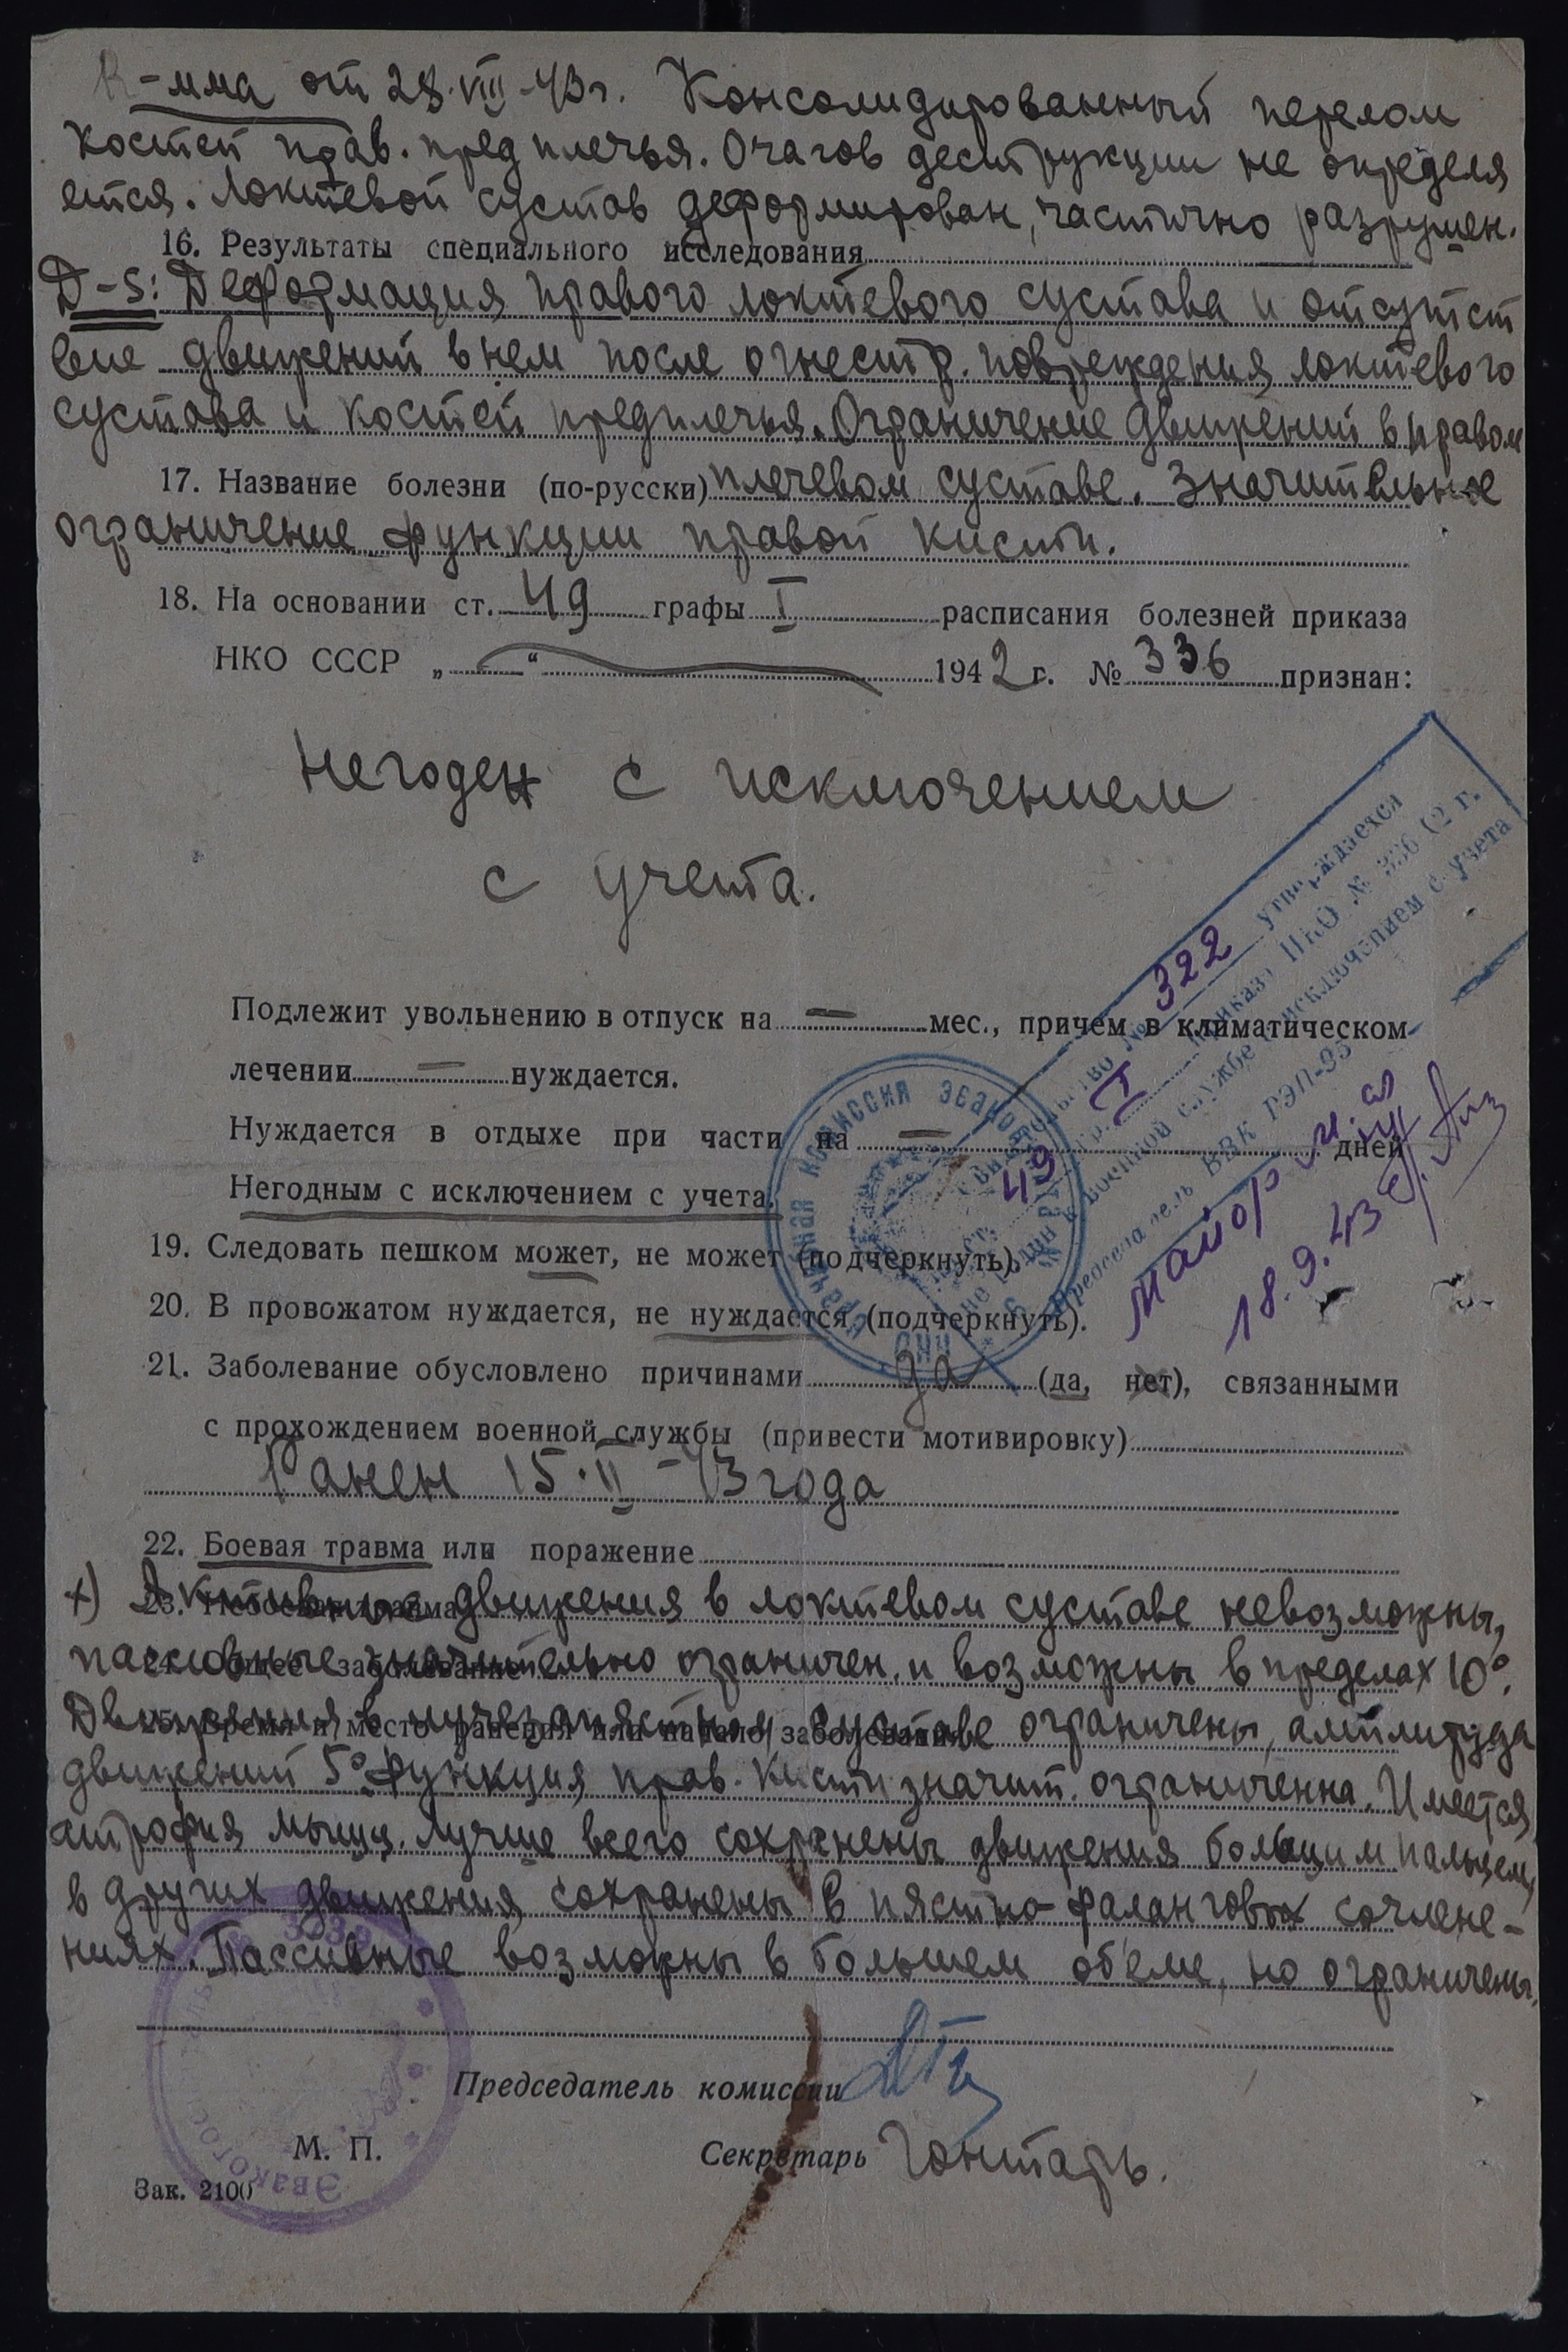 R-мма от 28.VIII-43г. Консолидированный перелом
костей прав. предплечья. Очагов деструкции не определя
ется. Локтевой сустав деформирован, частично разрушен.
16. Результаты специального исследования
D-S: Деформация правого локтевого сустава и отсутст
вие движений в нем после огнестр. повреждения локтевого
сустава и костей предплечья. Ограничение движений в правом
17. Название болезни (по-русски) плечевом суставе. Значительное
ограничение функции правой кисти.
18. На основании ст. 49 графы I расписания болезней приказа
НКО СССР „ “ 1942 г. № 336 признан:
Негоден с исключением
с учета.
Подлежит увольнению в отпуск на — мес., причем в климатическом
лечении — нуждается.
Нуждается в отдыхе при части на — дней
Негодным с исключением с учета.
19. Следовать пешком может, не может (подчеркнуть).
20. В провожатом нуждается, не нуждается (подчеркнуть).
21. Заболевание обусловлено причинами да (да, нет), связанными
с прохождением военной службы (привести мотивировку)
Ранен 15.II-43 года
22. Боевая травма или поражение
х) Активные движения в локтевом суставе невозможны,
пассивные значительно ограничен. и возможны в пределах 10°.
Движения в лучезапястном суставе ограничены, амплитуда
движений 5°. Функция прав. кисти значит. ограниченна. Имеется
атрофия мышц. Лучше всего сохранены движения большим пальцем,
в других движения сохранены в пястно-фаланговых сочлене-
ниях. Пассивные возможны в большем об'еме, но ограничены.
Председатель комиссии
М. П.
Секретарь Гонтарь.
Зак. 2100
Свидетельство № 322 утверждается
по ст. 49 гр. I приказа НКО № 336 42 г.
не годен к военной службе с исключением с учета
Председатель ВВК РЭП-95
майор м. сл
18.9.43
23. Небоевая травма
24. Общее заболевание
25. Время и место ранения или начало заболевания
врачебная комиссия эвакои